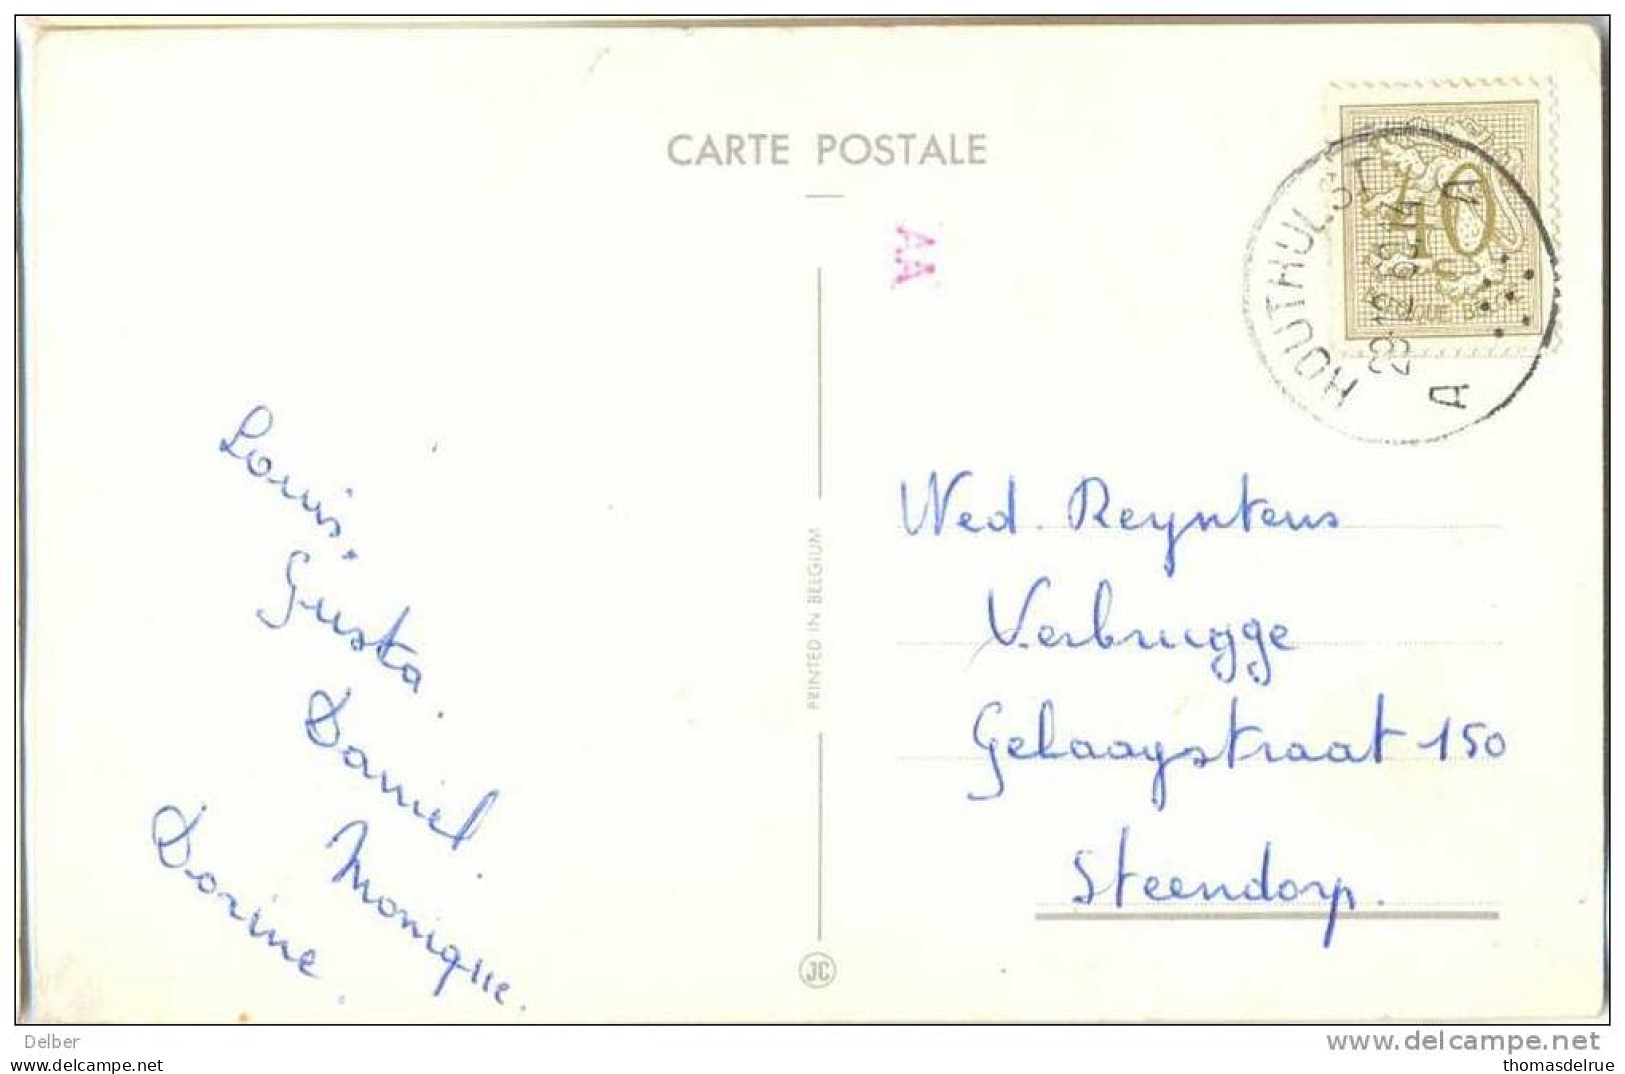 CARTE POSTALE
AA
HOUTHULST
A
A
40
c
BELGIQUE BELGIË
Louis,
Gusta.
Daniel.
Monique.
Dorine.
PRINTED IN BELGIUM
JC
Wed. Reyntens
Verbrugge
Gelaagstraat 150
Steendorp.
Delber
www.delcampe.net
thomasdelrue